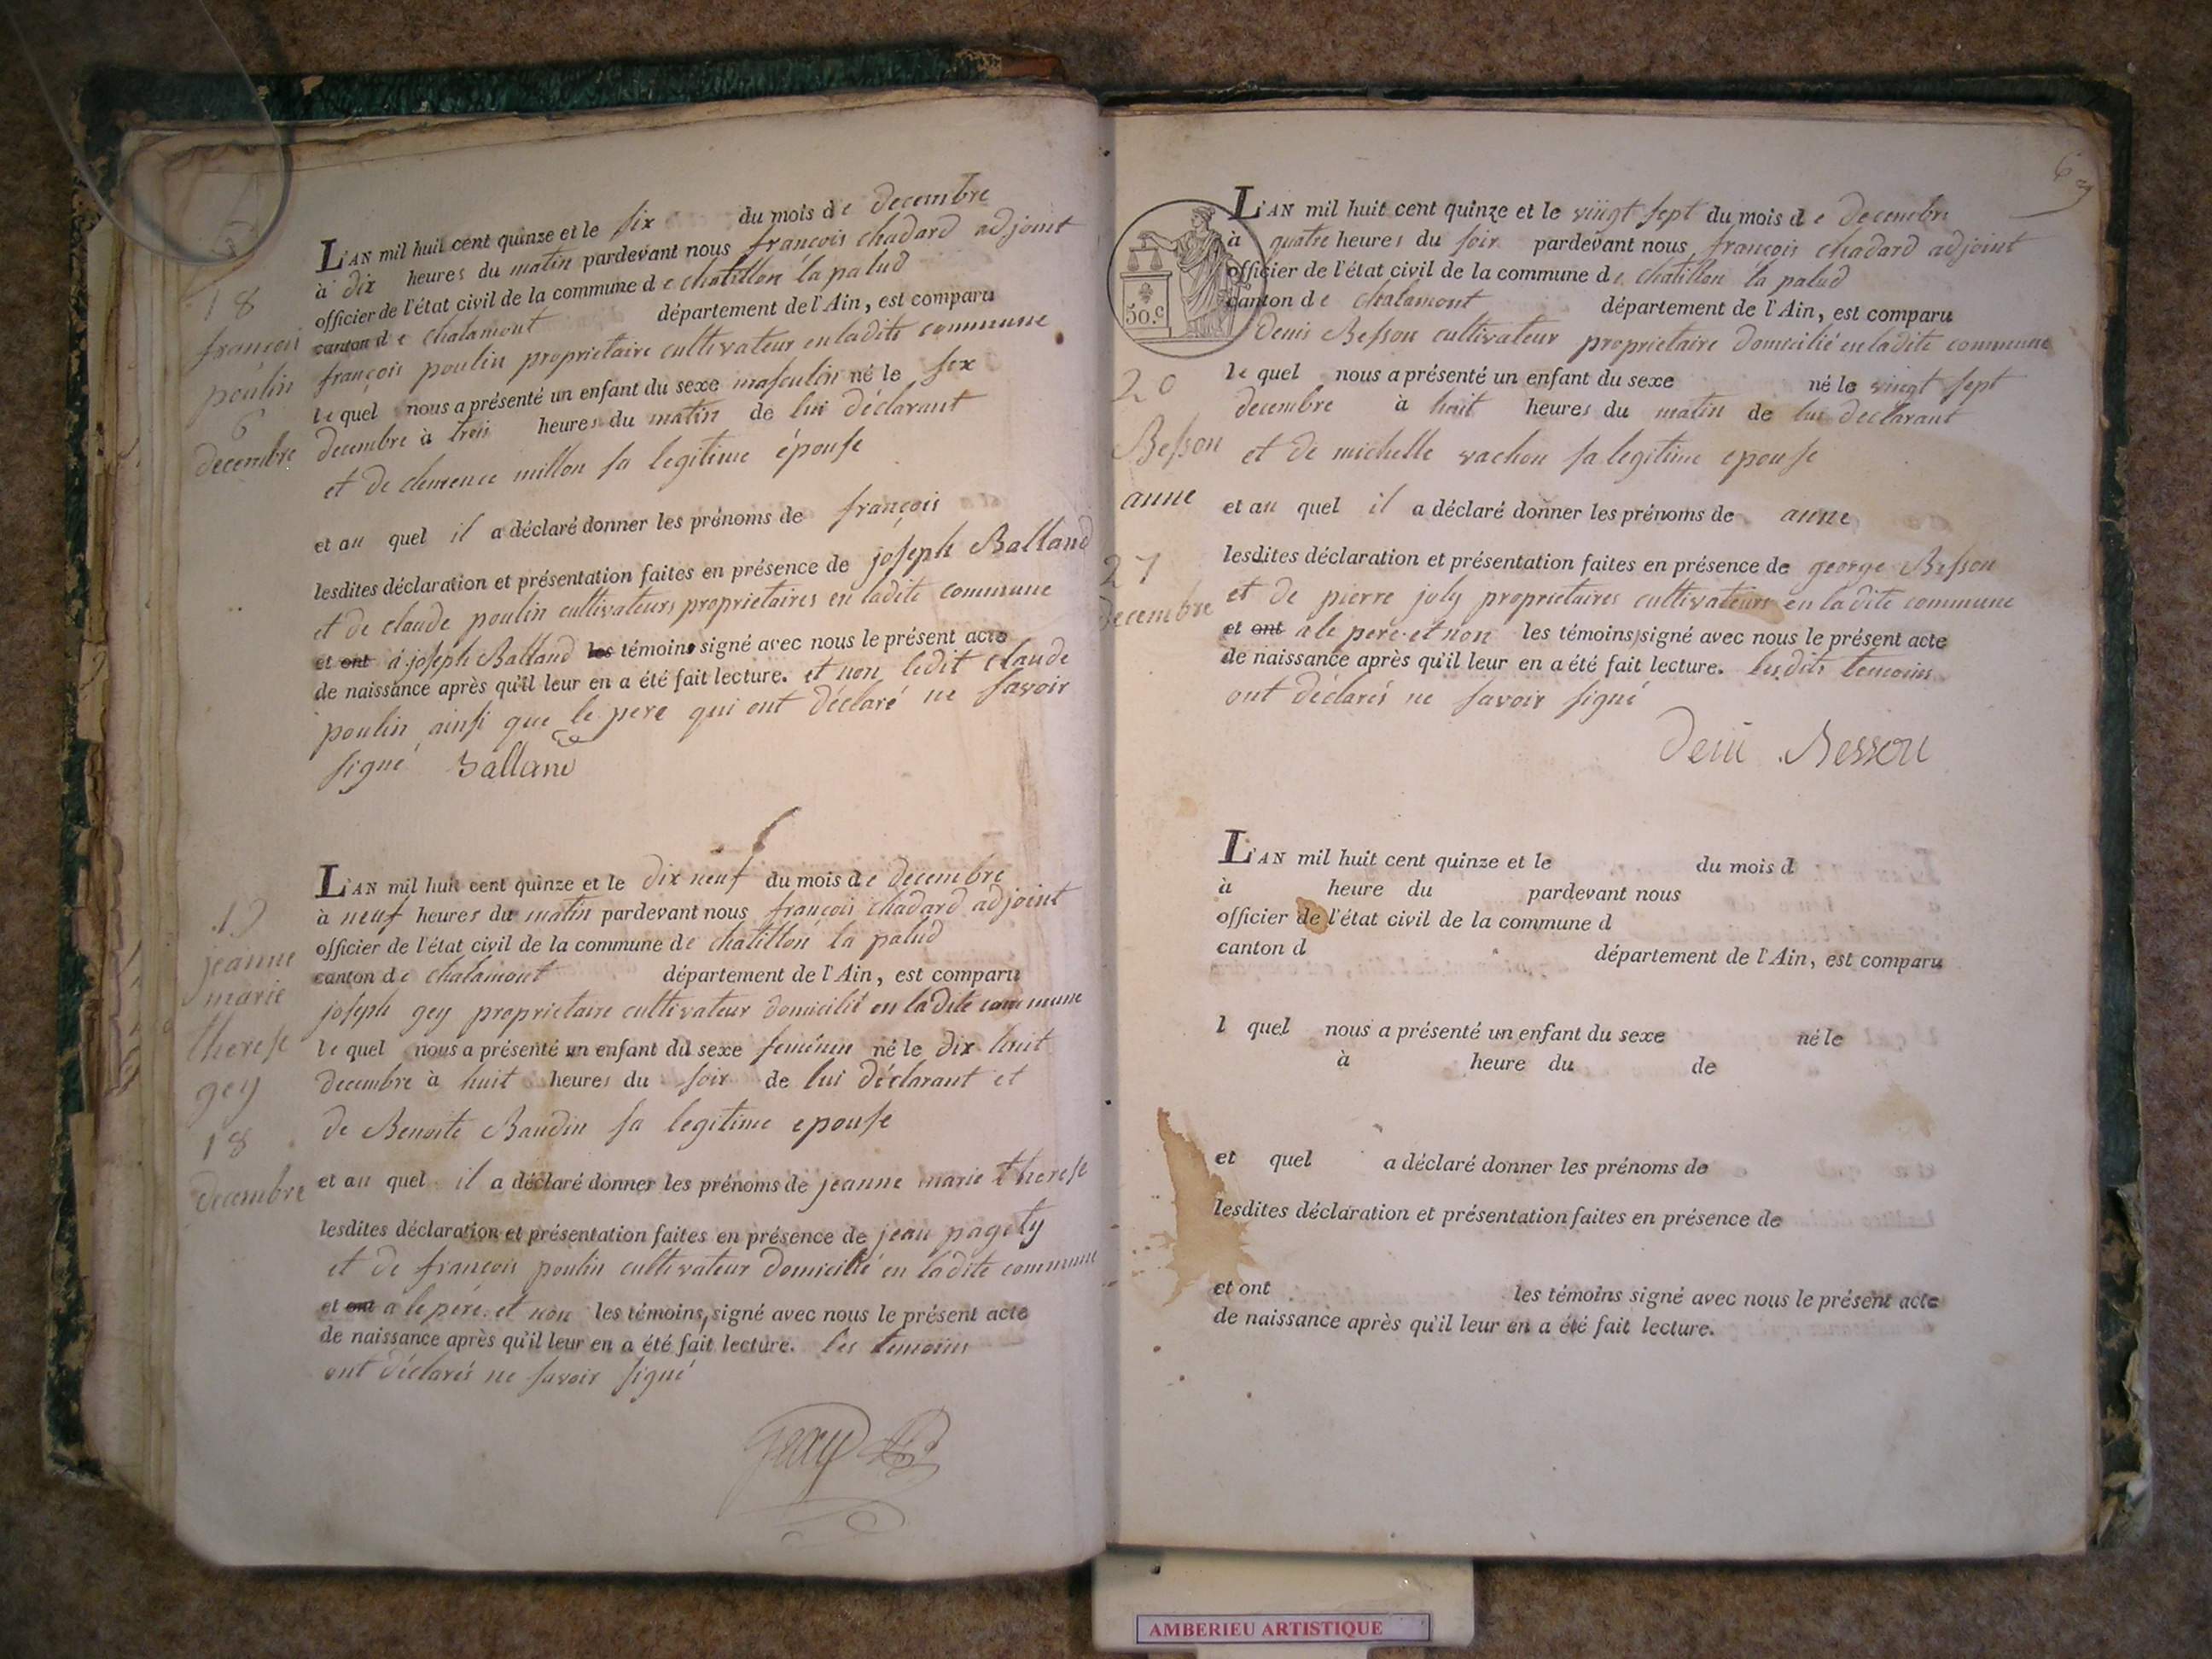 18
françois
poulin
6
decembre
L'AN mil huit cent quinze et le six du mois de decembre
à dix heures du matin pardevant nous françois chadard adjoint
officier de l'état civil de la commune de chatillon la palud
canton de chalamont département de l'Ain, est comparu
françois poulin proprietaire cultivateur en ladite commune
lequel nous a présenté un enfant du sexe masculin né le six
decembre à trois heures du matin de lui déclarant
et de clemence millon sa legitime épouse
et au quel il a déclaré donner les prénoms de françois
lesdites déclaration et présentation faites en présence de joseph Balland
et de claude poulin cultivateurs proprietaires en ladite commune
et ont á joséph Balland les témoins signé avec nous le présent acte
de naissance après qu'il leur en a été fait lecture. et non ledit claude
poulin ainsi que le pere qui ont déclaré ne savoir
signé Balland
19
jeanne
marie
therese
gey
18
decembre
L'AN mil huit cent quinze et le dix neuf du mois de decembre
à neuf heures du matin pardevant nous françois chadard adjoint
officier de l'état civil de la commune de chatillon la palud
canton de chalamont département de l'Ain, est comparu
joseph gey proprietaire cultivateur domicilié en ladite commune
lequel nous a présenté un enfant du sexe feminin né le dix huit
decembre à huit heures du soir de lui déclarant et
de Benoite Baudin sa legitime epouse
et au quel il a déclaré donner les prénoms de jeanne marie therese
lesdites déclaration et présentation faites en présence de jean pagety
et de françois poulin cultivateur domicilié en ladite commune
et ont a le pére et non les témoins, signé avec nous le présent acte
de naissance après qu'il leur en a été fait lecture. les temoins
ont déclarés ne savoir signé
50.c
20
Besson
anne
27
decembre
L'AN mil huit cent quinze et le vingt sept du mois de decembre
à quatre heures du soir pardevant nous françois chadard adjoint
officier de l'état civil de la commune de chatillon la palud
canton de chalamont département de l'Ain, est comparu
Denis Besson cultivateur proprietaire domicilié en ladite commune
lequel nous a présenté un enfant du sexe né le vingt sept
decembre à huit heures du matin de lui declarant
et de michelle vachon sa legitime epouse
et au quel il a déclaré donner les prénoms de anne
lesdites déclaration et présentation faites en présence de george Besson
et de pierre joly proprietaires cultivateurs en ladite commune
et ont a le pere et non les témoins, signé avec nous le présent acte
de naissance après qu'il leur en a été fait lecture. lesdits temoins
ont déclarés ne savoir signé
Deni Besson
L'AN mil huit cent quinze et le du mois d
à heure du pardevant nous
officier de l'état civil de la commune d
canton d département de l'Ain, est comparu
l quel nous a présenté un enfant du sexe né le
à heure du de
et quel a déclaré donner les prénoms de
lesdites déclaration et présentation faites en présence de
et ont les témoins signé avec nous le présent acte
de naissance après qu'il leur en a été fait lecture.
AMBERIEU ARTISTIQUE